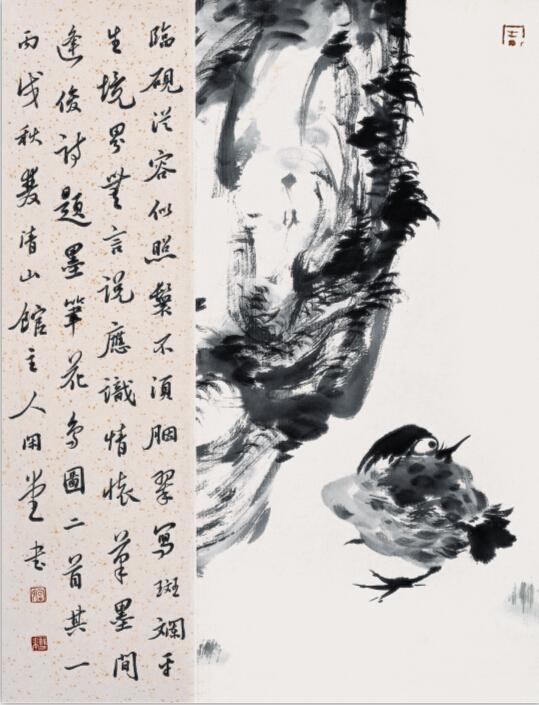 臨硯從容似照鬟不須胭翠寫斑斕平
生境界無言說應識情懷筆墨間
逢俊詩題墨筆花鳥圖二首其一
丙戌秋雙清山館主人閑堂書